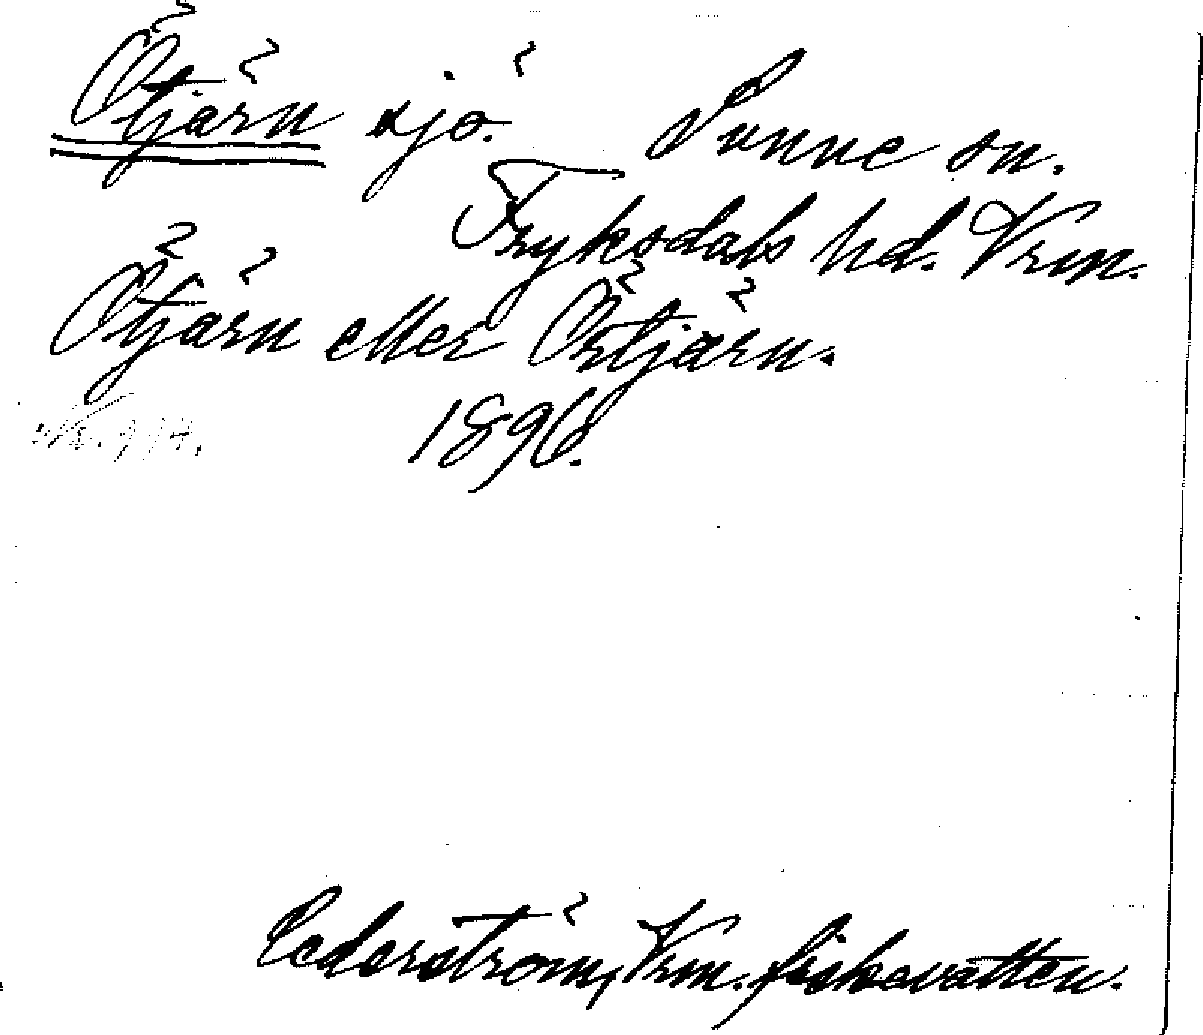 Ötjärn sjö. Sunne sn.
Fryksdals hd. Vrm.
Ötjärn eller Örtjärn.
1896.
Cederström, Vrm. fiskevatten.